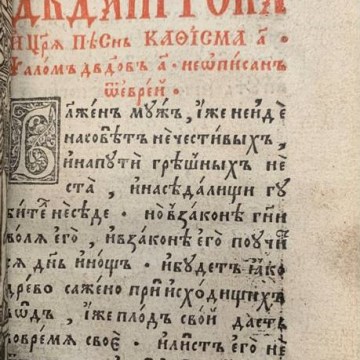 и҆ цр҃ѧ пѣснь каѳисма а҃ ·
ѱалом двд҃овъ а҃ · не ѡ҆писан
ѿ еврей ·
Блженъ мужъ, и҆же не и҆де
на совѣтъ нечестивыхъ,
и҆ на пути грѣшныхъ не
ста, и҆ на сѣдалищи гу
бителѣ не сѣде · но в҆ законе гн҃и
волѧ е҆го, и҆ в҆ законе е҆го поучи
сѧ дн҃ь и҆ нощь · и҆ будетъ ꙗ҆ко
древо сажено при и҆сходищихъ
водъ, и҆же плодъ свой дасть
во времѧ своє · и҆ листъ е҆го не